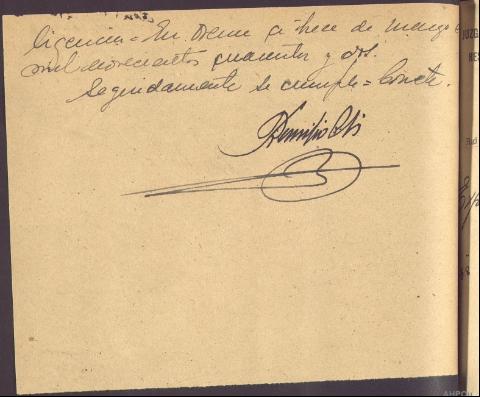 ligencia = En Orense a trece de Marzo de
mil novecientos cuarenta y dos.
Seguidamente se cumple = Conste.
JUZG
AHPOU